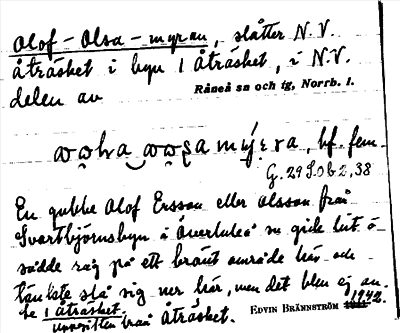 Olof-Olsa-myran, slåtter N.V.
Åträsket i byn 1 Åträsket, i N.V.
delen av Råneå sn och tg, Norrb. l.
bf. fem.
G. 29 S. ob 2, 38
En gubbe Olof Ersson eller Olsson från
Svartbjörnsbyn i Överluleå sn gick hit o.
svidde säg på ett bränt område här och
tänkte slå sig ner här, men det blev ej av.
Åträsket. EDVIN BRÄNNSTRÖM 1942.